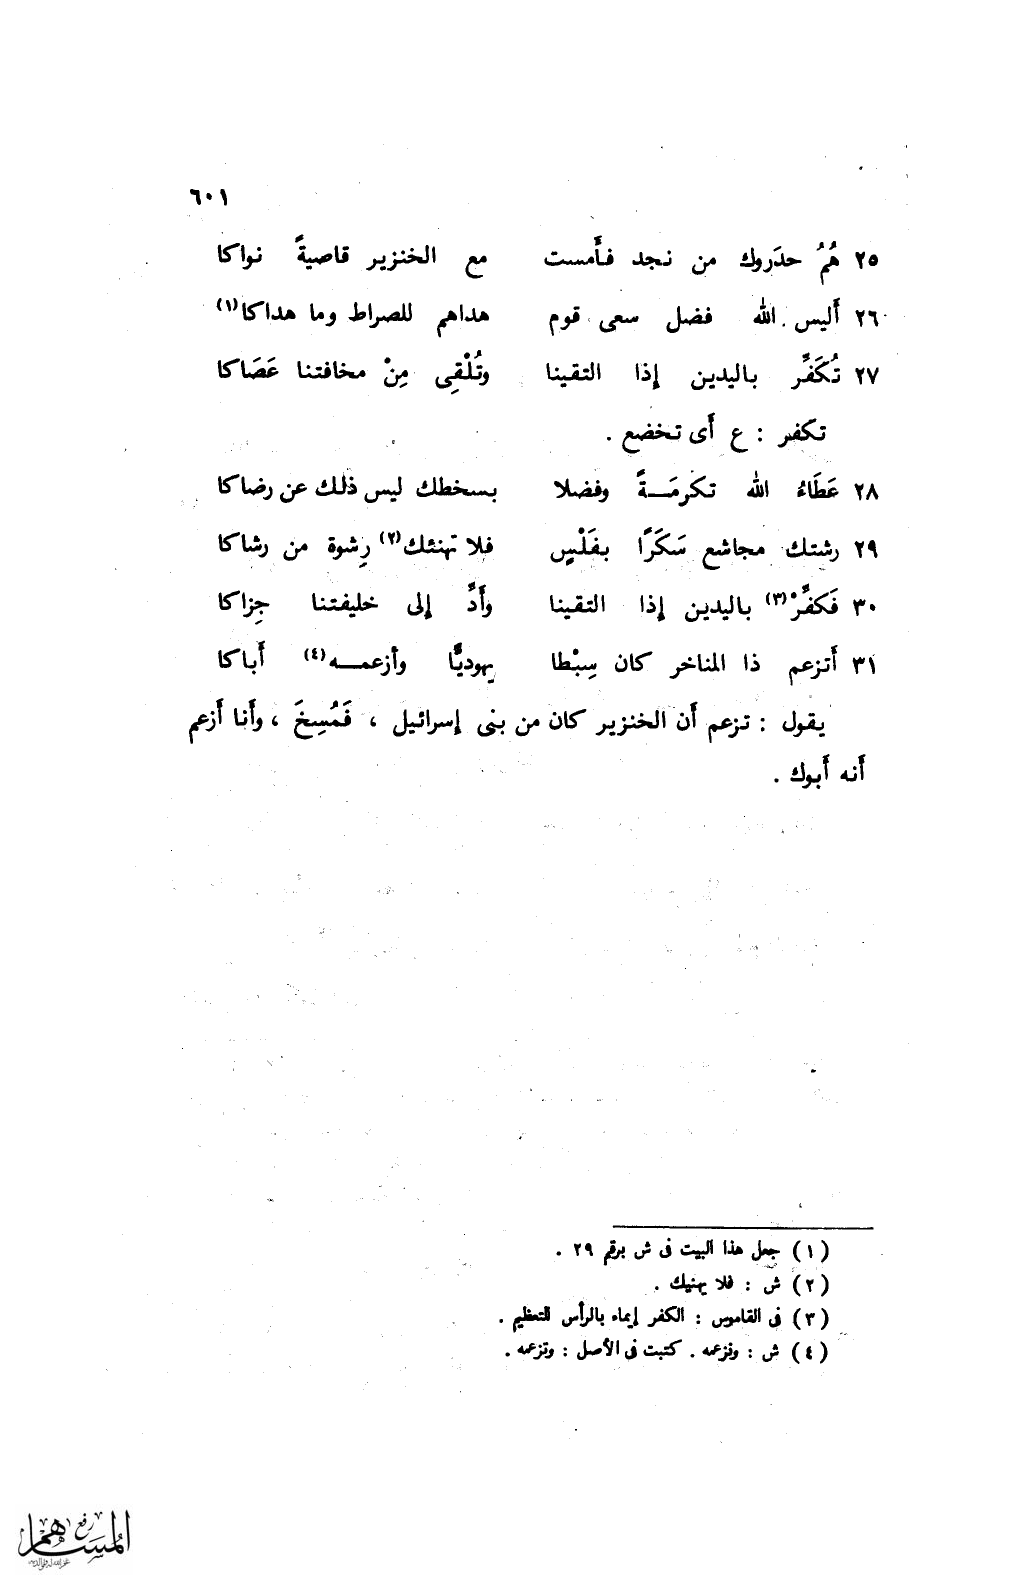 ٦٠١
٢٥ هُمُ حدَروك من نجد فأَمست مع الخنزير قاصيةً نواكا
٢٦ أَليس الله فضل سعى قوم هداهم للصراط وما هداكا(١)
٢٧ تُكَفِّر باليدين إذا التقينا وتُلْقِى مِنْ مخافتنا عَصَاكا
تكفر : ع أَى تخضع .
٢٨ عَطَاءُ الله تكرمَـــةً وفضلا بسخطك ليس ذلك عن رضاكا
٢٩ رشتك مجاشع سَكَرًا بفَلْسٍ فلا تهنئك(٢) رِشوة من رشاكا
٣٠ فَكفِّرْ(٣) باليدين إذا التقينا وأَدِّ إلى خليفتنا جِزاكا
٣١ أَتزعم ذا المناخر كان سِبْطا يهوديًّا وأزعمـــه(٤) أَباكا
يقول : تزعم أَن الخنزير كان من بنى إسرائيل ، فَمُسِخَ ، وأَنا أَزعم
أَنه أَبوك .
(١) جعل هذا البيت فى ش برقم ٢٩ .
(٢) ش : فلا يهنيك .
(٣) فى القاموس : الكفر إيماء بالرأس للتعظيم .
(٤) ش : ونزعمه . كتبت فى الأصل : وتزعمه .
رفع
المساهم